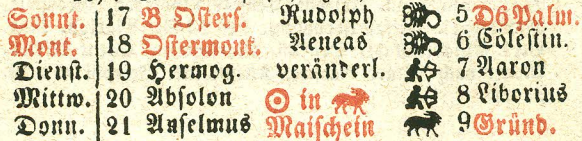 Sonnt. 17 B Osterf. Rudolph 5 D6 Palm.
Mont. 18 Ostermont. Aeneas 6 Cölestin.
Dienst. 19 Hermog. veränderl. 7 Aaron
Mittw. 20 Absolon ☉ in 8 Liborius
Donn. 21 Anselmus Maischein 9 Gründ.